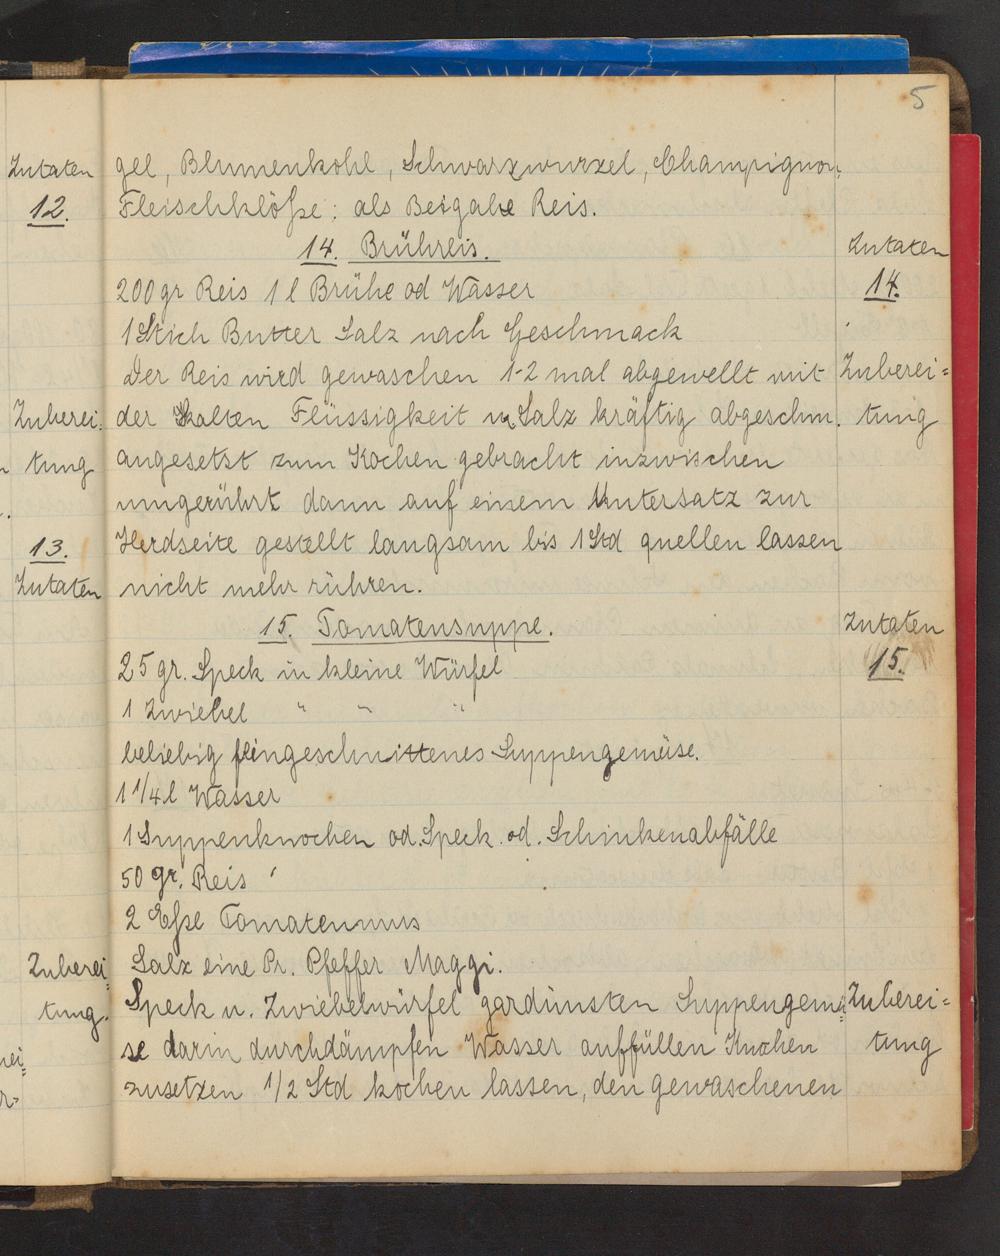 5
gel, Blumenkohl, Schwarzwurzel, Champignon,
Fleischklöße; als Beigabe Reis.
14. Brühreis.
Zutaten
14.
200 gr Reis 1 l Brühe od Wasser
1 Stich Butter Salz nach Geschmack
Der Reis wird gewaschen 1-2 mal abgewellt mit
Zuberei=
der kalten Flüssigkeit u. Salz kräftig abgeschm.
tung
angesetzt zum Kochen gebracht inzwischen
umgerührt dann auf einem Untersatz zur
Herdseite gestellt langsam bis 1 Std quellen lassen
nicht mehr rühren.
15. Tomatensuppe.
Zutaten
15.
25 gr. Speck in kleine Würfel
1 Zwiebel " " "
beliebig feingeschnittenes Suppengemüse.
1 1/4 l Wasser
1 Suppenknochen od. Speck. od. Schinkenabfälle
50 gr. Reis
2 Eßl Tomatenmus
Salz eine Pr. Pfeffer Maggi.
Speck u. Zwiebelwürfel gardünsten Suppengemü=
Zuberei=
se darin durchdämpfen Wasser auffüllen Knochen
tung
zusetzen 1/2 Std kochen lassen, den gewaschenen
Zutaten
12.
Zuberei=
tung
13.
Zutaten
Zuberei=
tung.